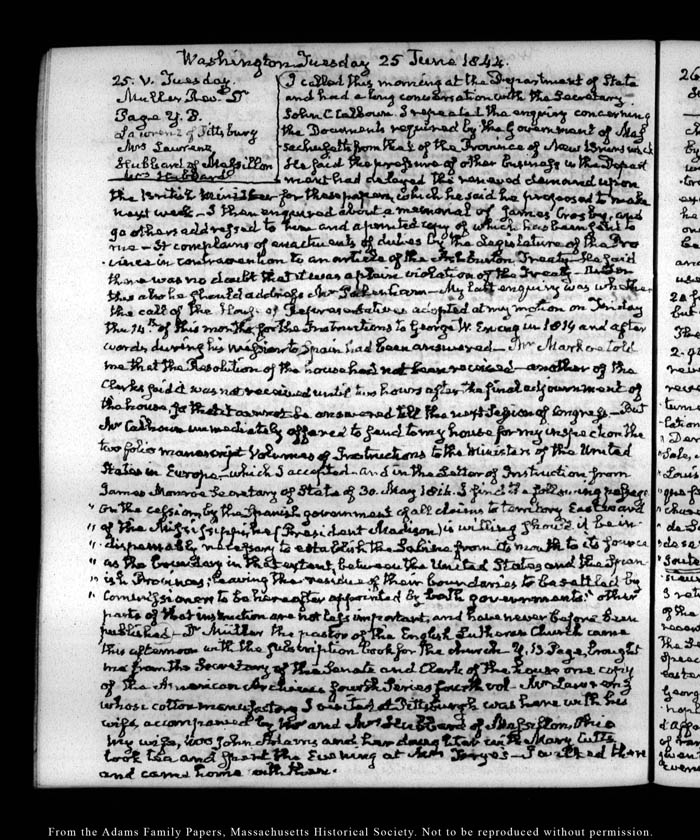 Washington Tuesday 25 June 1844.
25. V. Tuesday.
Muller Rev. D
Page Y. B.
Lawrenz of Pittsburg
Mrs Lawrenz
Hubbard of Massillon
Mrs Hubbard
I called this morning at the Department of State
and had a long conversation with the Secretary
John C Calhoun. I repeated the enquiry concerning
the Documents required by the Government of Mas
sachusetts from that of the Province of New Brunswick
He said the pressure of other business in the Depart
ment had delayed the renewed demand upon
the British Minister for these papers, which he said he proposed to make
next week — I then enquired about a memorial of James Crosby, and
go others addressed to him and a printed copy of which has been sent to
me — It complains of enactments of duties by the Legislature of the Pro
vince in contravention to an article of the Ashburton Treaty — He said
there was no doubt that it was a plain violation of the Treaty —
this also he should address Mr Pakenham — My last enquiry was whether
the call of the House of Representatives adopted at my motion on Friday
the 14th of this month, for the Instructions to George W. Erving in 1814 and after
wards during his mission to Spain had been answered — Mr Markoe told
me that the Resolution of the house had not been received — another of the
Clerks said it was not received until two hours after the final adjournment of
the house, so that it cannot be answered till the next Session of Congress — But
Mr Calhoun immediately offered to send to my house for my inspection the
two folio manuscript Volumes of Instructions to the Ministers of the United
States in Europe, which I accepted — and in the Letter of Instruction from
James Monroe Secretary of State of 30. May 1816. I find the following passage
" On the cession by the Spanish government of all claims to territory Eastward
" of the Mississippi he (President Madison) is willing should it be in
" dispensably necessary to establish the Sabine from its mouth to its source
" as the boundary in that extent, between the United States and the Span
" ish Provinces; leaving the residue of their boundaries to be settled by
" Commissioners to be hereafter appointed by both governments." other
parts of that instruction are not less important, and have never before been
published — Dr Muller the pastor of the English Lutheran Church came
this afternoon with the subscription book for the church — Y. B Page, brought
me from the Secretary of the Senate and Clerk of the house one copy
of the American Archives fourth Series fourth vol — Mr Lawrenz
whose cotton manufactory I visited at Pittsburgh was here with his
wife, accompanied by Mr and Mrs Hubbard of Massillon, Ohio
My wife, Mrs John Adams and her daughter with Mary Cutts
took tea and spent the Evening at Mrs — I walked there
and came home with them.